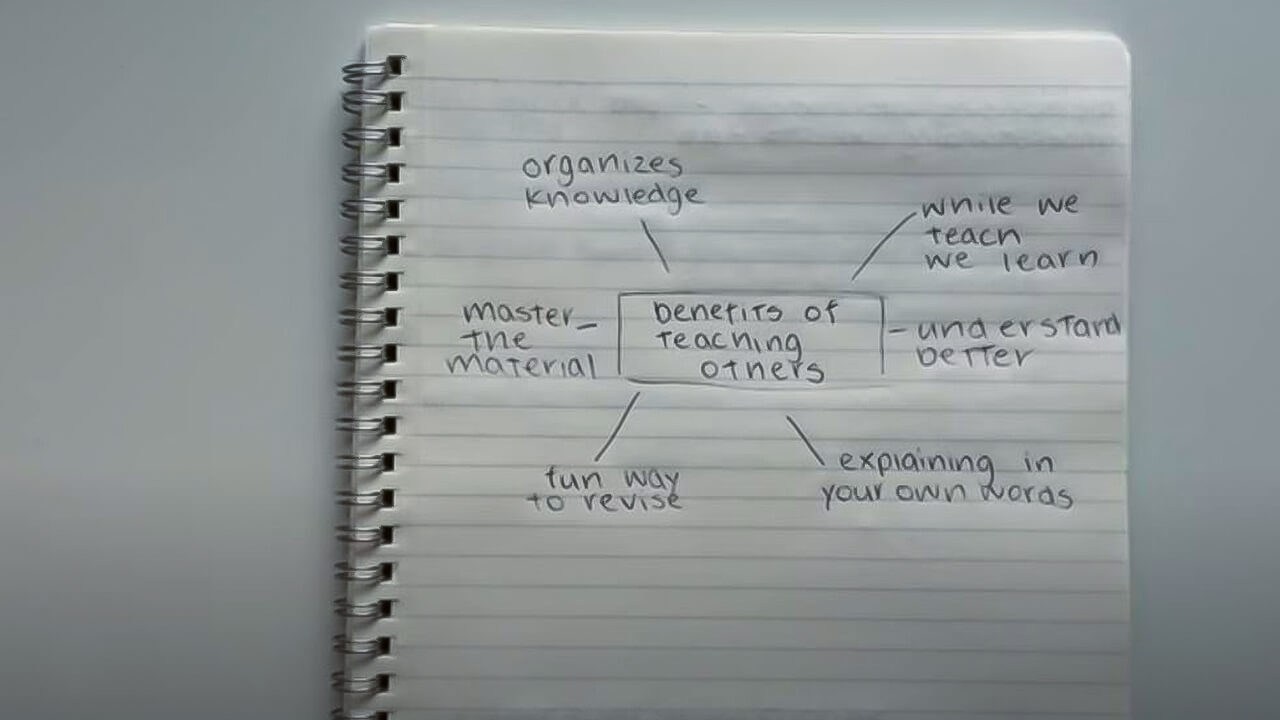 organizes
knowledge
while we
teach
we learn
master
the
material
benefits of
teaching
others
understand
better
fun way
to revise
explaining in
your own words